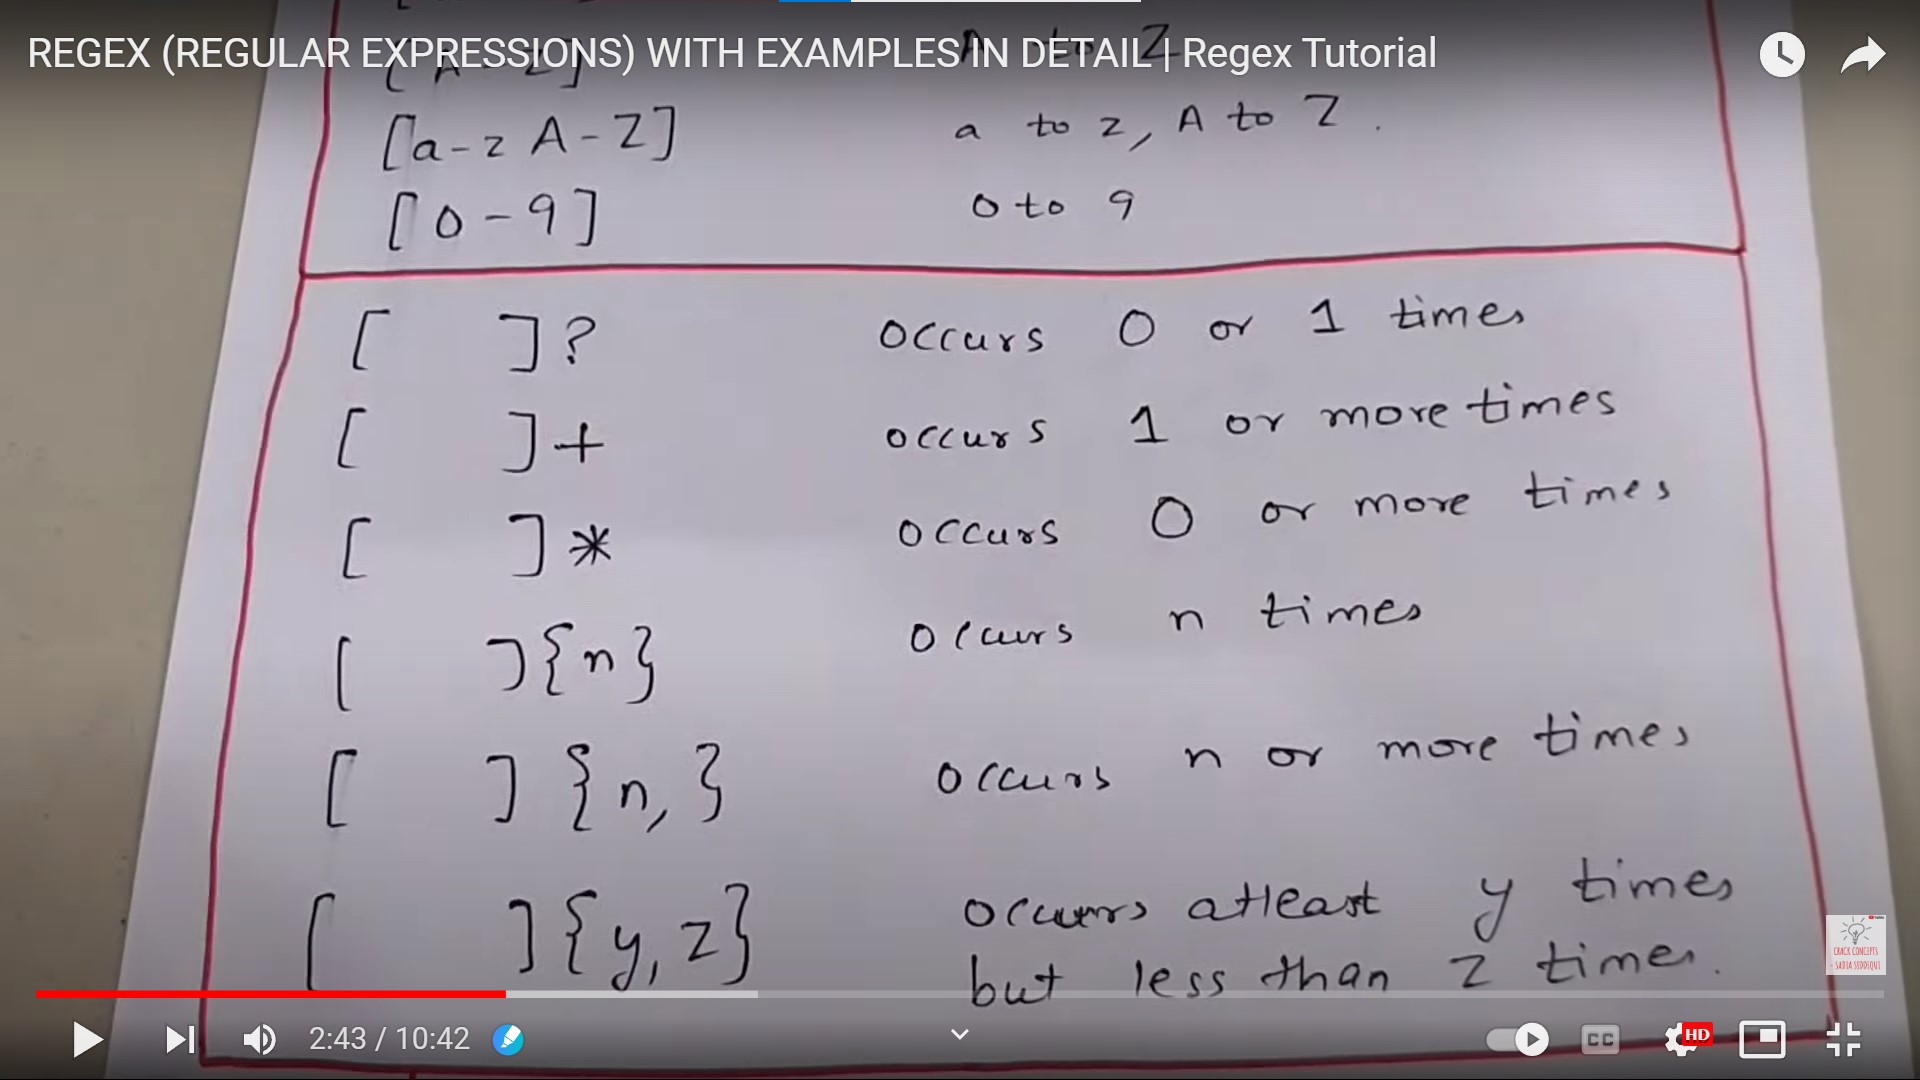 REGEX (REGULAR EXPRESSIONS) WITH EXAMPLES IN DETAIL | Regex Tutorial
[A-Z] A to Z
[a-z A-Z] a to z, A to Z.
[0-9] 0 to 9
[ ]? occurs 0 or 1 times
[ ]+ occurs 1 or more times
[ ]* occurs 0 or more times
[ ]{n} occurs n times
[ ]{n,} occurs n or more times
[ ]{y,z} occurs atleast y times
but less than z times.
CRACK CONCEPTS
- SADIA SIDDIQUI
2:43 / 10:42
CC
HD